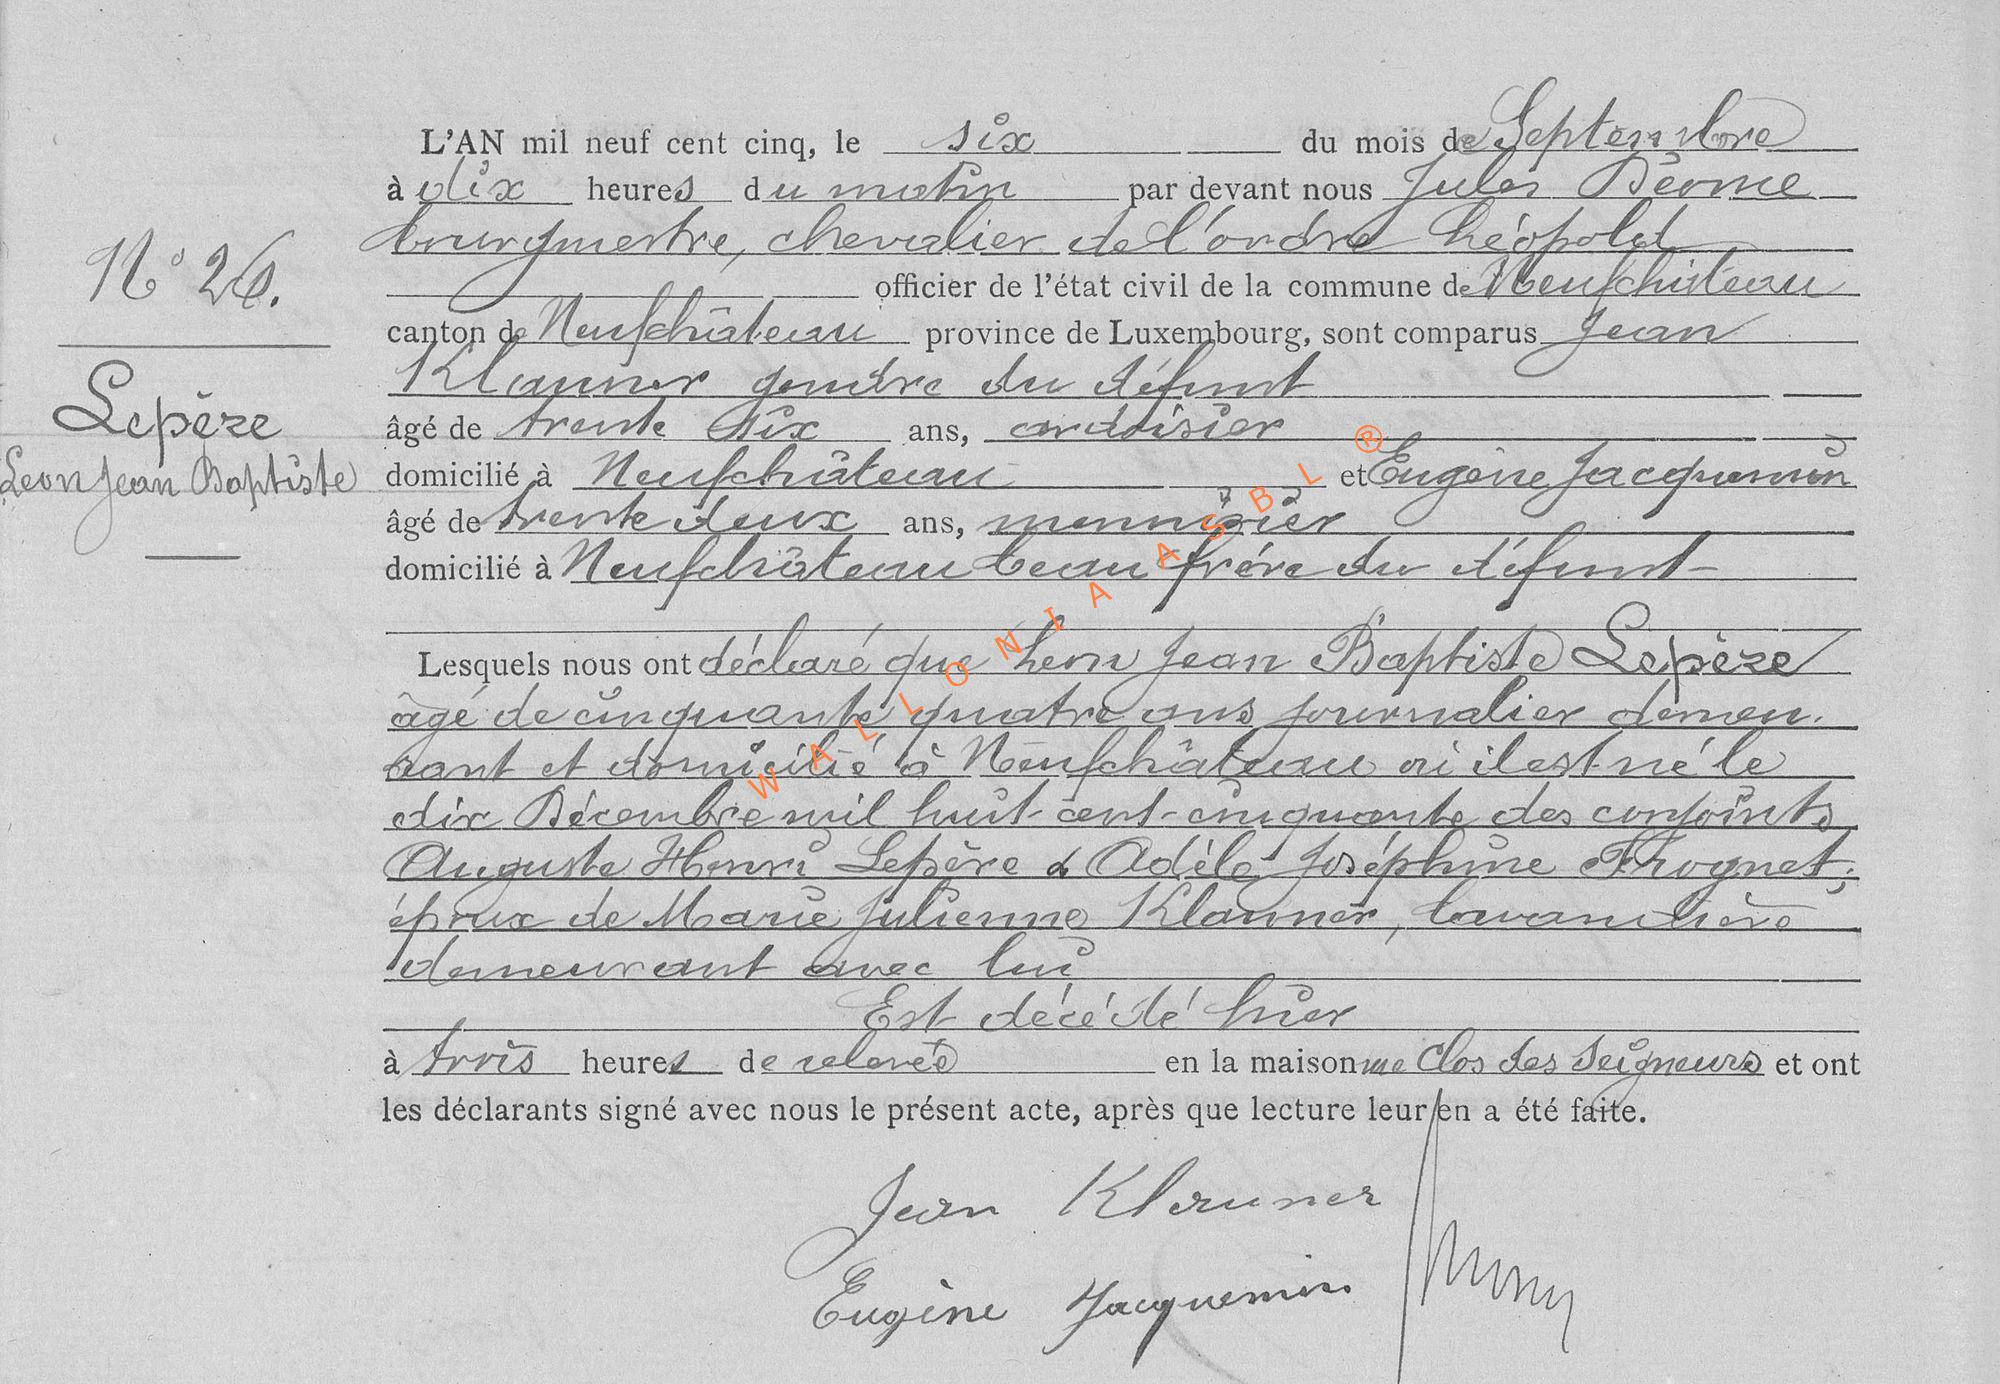 N° 26.
Lepère
Leon Jean Baptiste
L'AN mil neuf cent cinq, le six du mois de Septembre
à dix heures du matin par devant nous Jules
bourgmestre, chevalier de l'ordre Léopold
officier de l'état civil de la commune de Neufchâteau
canton de Neufchâteau province de Luxembourg, sont comparus Jean
Klauner gendre du défunt
âgé de trente six ans, ardoisier
domicilié à Neufchâteau et Eugène Jacquemin
âgé de trente deux ans, menuisier
domicilié à Neufchâteau beau frère du défunt
Lesquels nous ont déclaré que Leon Jean Baptiste Lepère
âgé de cinquante quatre ans journalier demeu-
rant et domicilié à Neufchâteau où il est né le
dix Décembre mil huit cent cinquante des conjoints
Auguste Henri Lepère & Adèle Joséphine Frognet,
époux de Marie Julienne Klauner, lavandière
demeurant avec lui
Est décédé hier
à trois heures de relevée en la maison rue Clos des Seigneurs et ont
les déclarants signé avec nous le présent acte, après que lecture leur en a été faite.
Jean Klauner
Eugène Jacquemin
WALLONIA ASBL ®